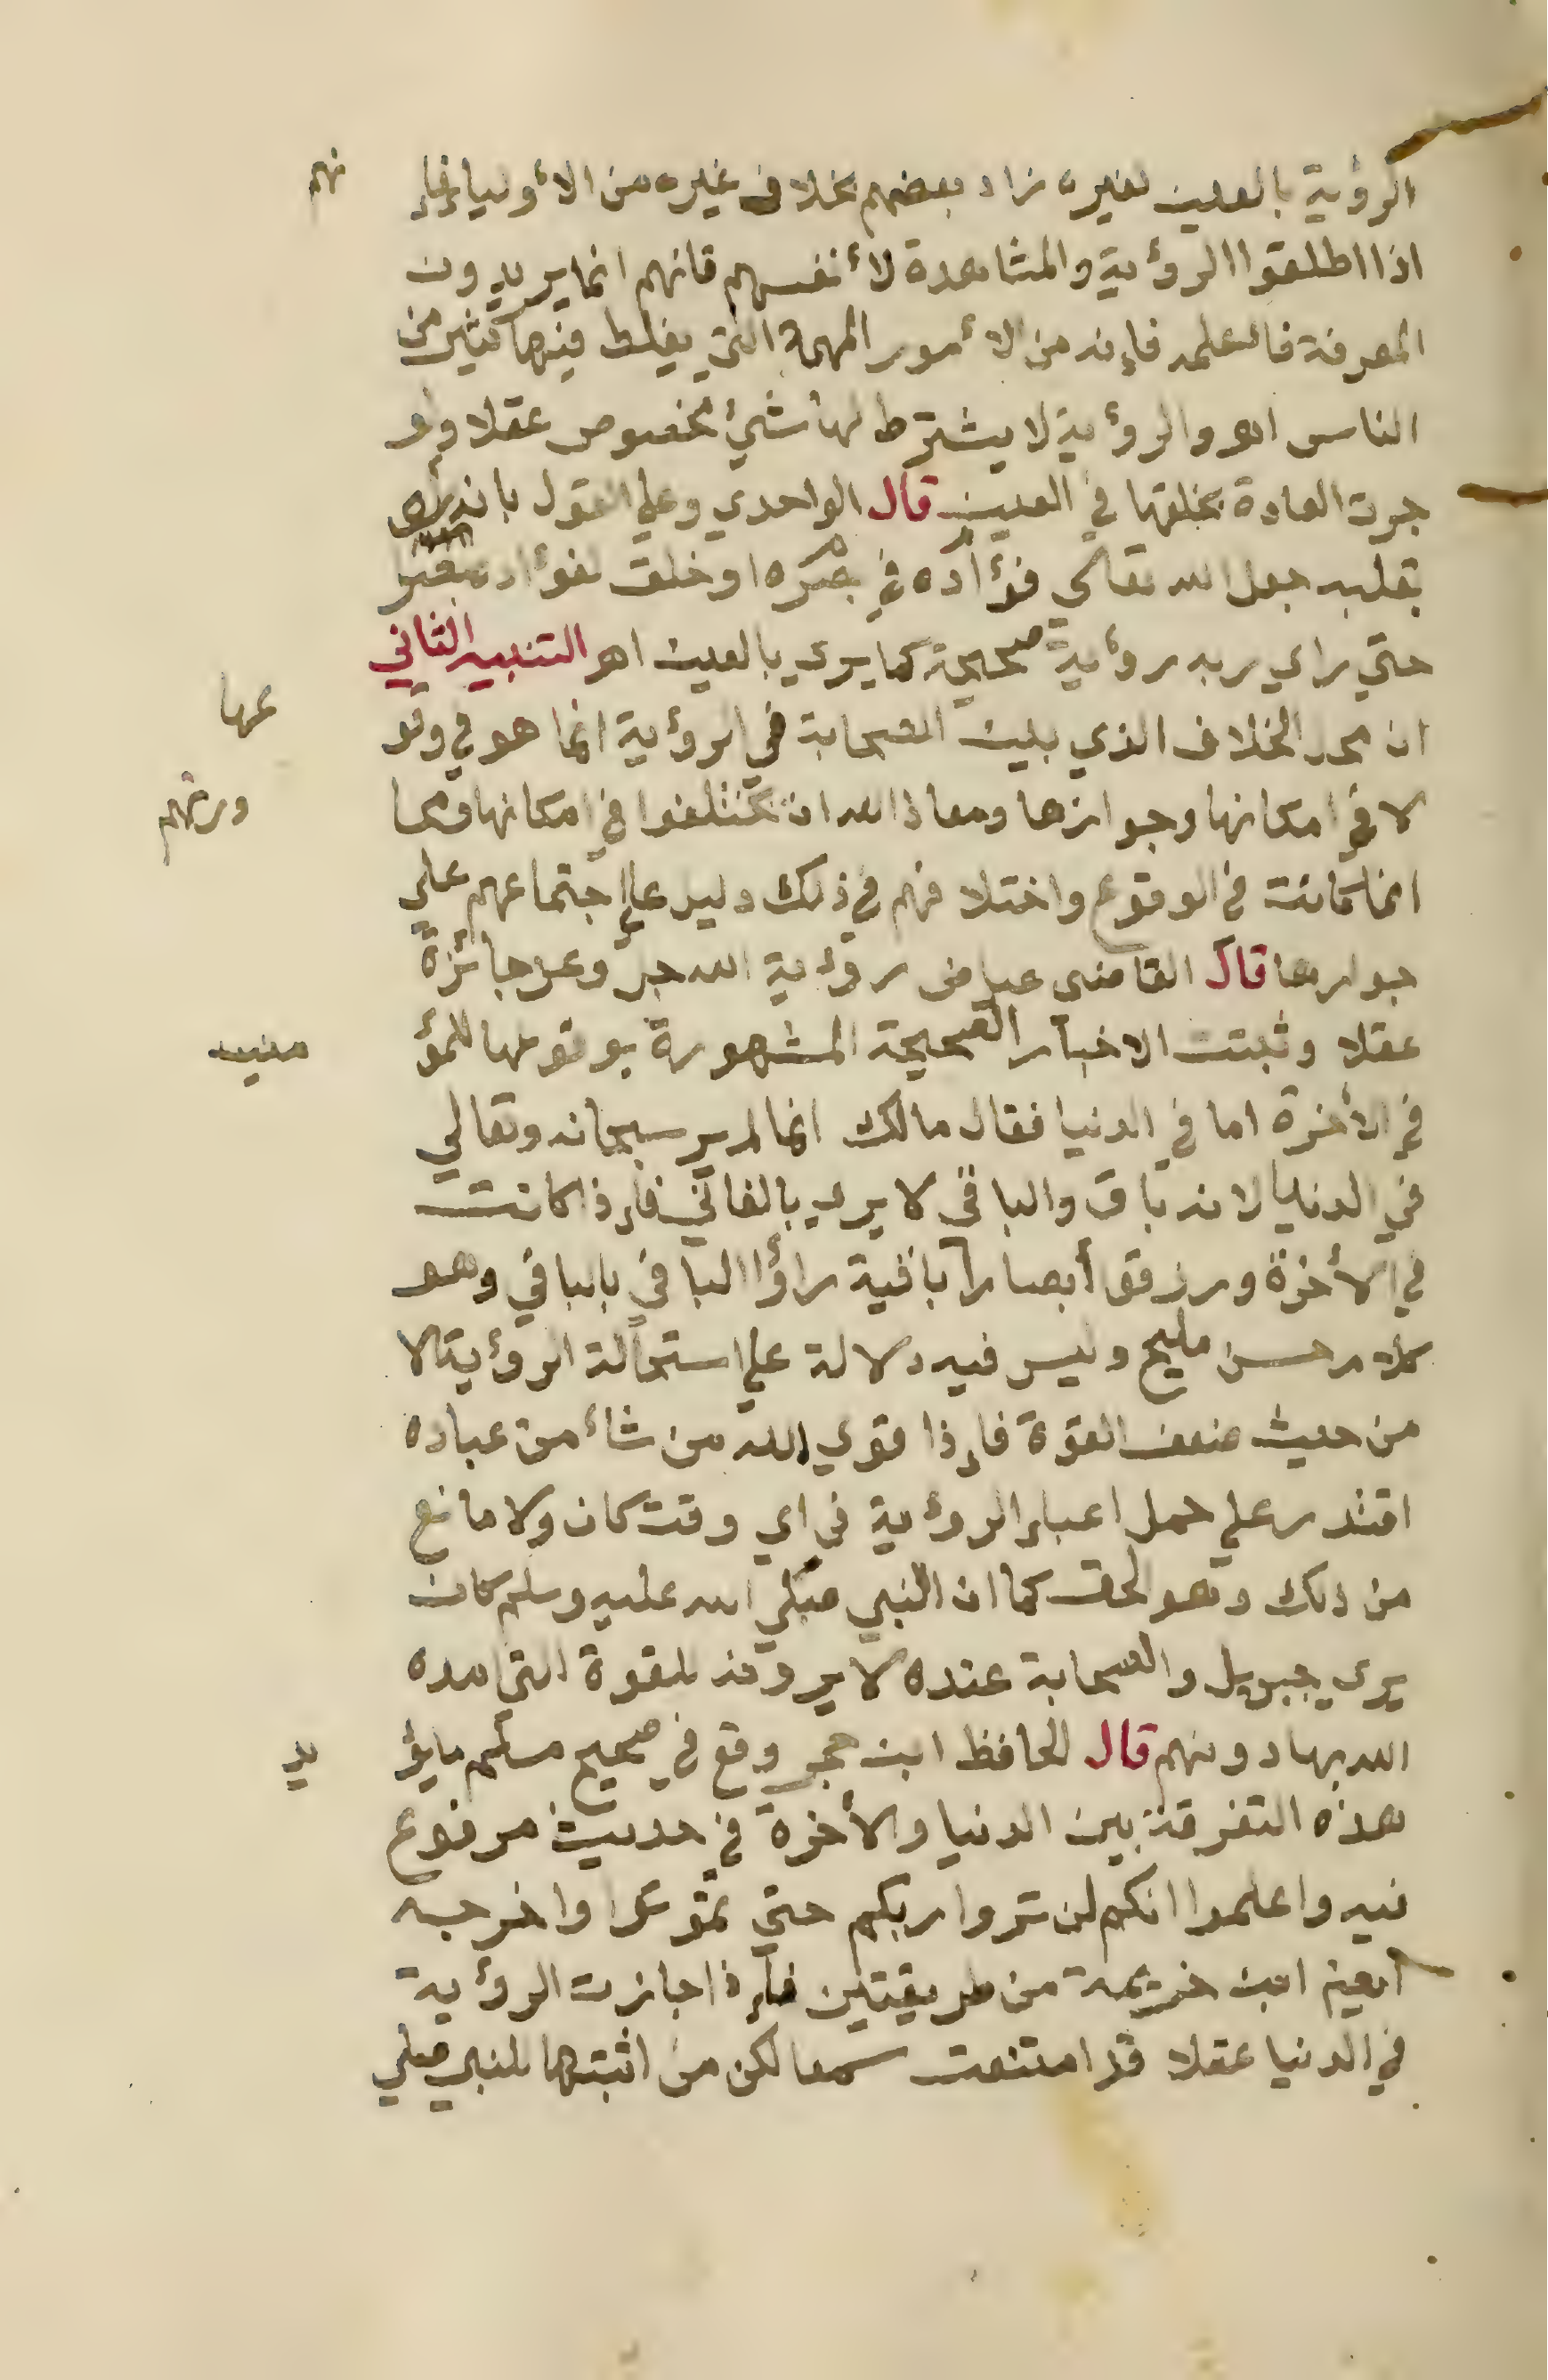 الرؤية بالعين لغيره زاد بعضهم بخلاف غيره من الأولياء فإنهم
اذا اطلقوا الرؤية والمشاهدة لأنفسهم فانهم انما يريدون
المعرفة فاعلمه فإنه من الأمور المهمة التي يغلط فيها كثير من
الناس اهـ والرؤية لا يشترط لها شيئ مخصوص عقلا ولو
جرت العادة بخلقها في العين قال الواحدي وعلي القول بانه رأى
بقلبه جعل الله تعالي فؤاده في بصره او خلق لفؤاده بصرا
حتي راي ربه رؤية صحيحة كما يري بالعين اهـ التنبيه الثاني
ان محل الخلاف الذي بين الصحابة في الرؤية انما هو في وقوعها
لا في امكانها وجوازها ومعاذ الله ان يختلفوا في امكانها ومحاورتهم
انما كانت في الوقوع واختلافهم في ذلك دليل علي اجتماعهم علي
جوازها قال القاضي عياض رؤية الله جل وعز جائزة
عقلا وثبتت الاخبار الصحيحة المشهورة بوقوعها للمؤمنين
في الأخرة اما في الدنيا فقال مالك انما لم ير سبحانه وتعالي
في الدنيا لانه باق والباقي لا يري بالفاني فإذا كانت
في الأخرة ورزقوا أبصارا باقية راؤا الباقي بالباقي وهو
كلام حسن مليح وليس فيه دلالة علي استحالة الرؤية الا
من حيث ضعف القوة فإذا قوي الله من شاء من عباده
اقتدر علي حمل اعباء الرؤية في اي وقت كان ولا مانع
من ذلك وهو الحق كما ان النبي صلي الله عليه وسلم كان
يري جبريل والصحابة عنده لا يرونه للقوة التي امده
الله بها دونهم قال الحافظ ابن حجر وقع في صحيح مسلم ما يؤيد
هذه التفرقة بين الدنيا والأخرة في حديث مرفوع
فيه واعلموا انكم لن تروا ربكم حتي تموتوا واخرجه
أيضا ابن خزيمة من طريقتين فإذا جازت الرؤية
في الدنيا عقلا قد امتنعت سمعا لكن من اثبتها للنبي صلي